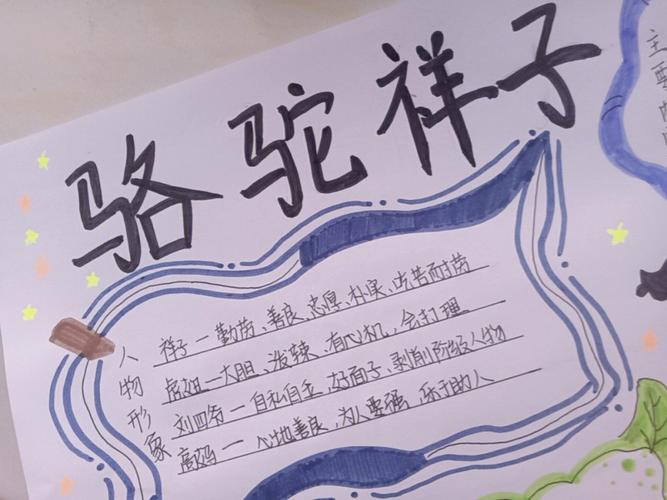 骆驼祥子
人物形象
祥子一勤劳、善良、忠厚、朴实、吃苦耐劳
虎妞一大胆、泼辣、有心机、会打理
刘四爷一自私自金、好面子、剥削阶级人物
高妈一心地善良、为人要强、乐于助人
主要